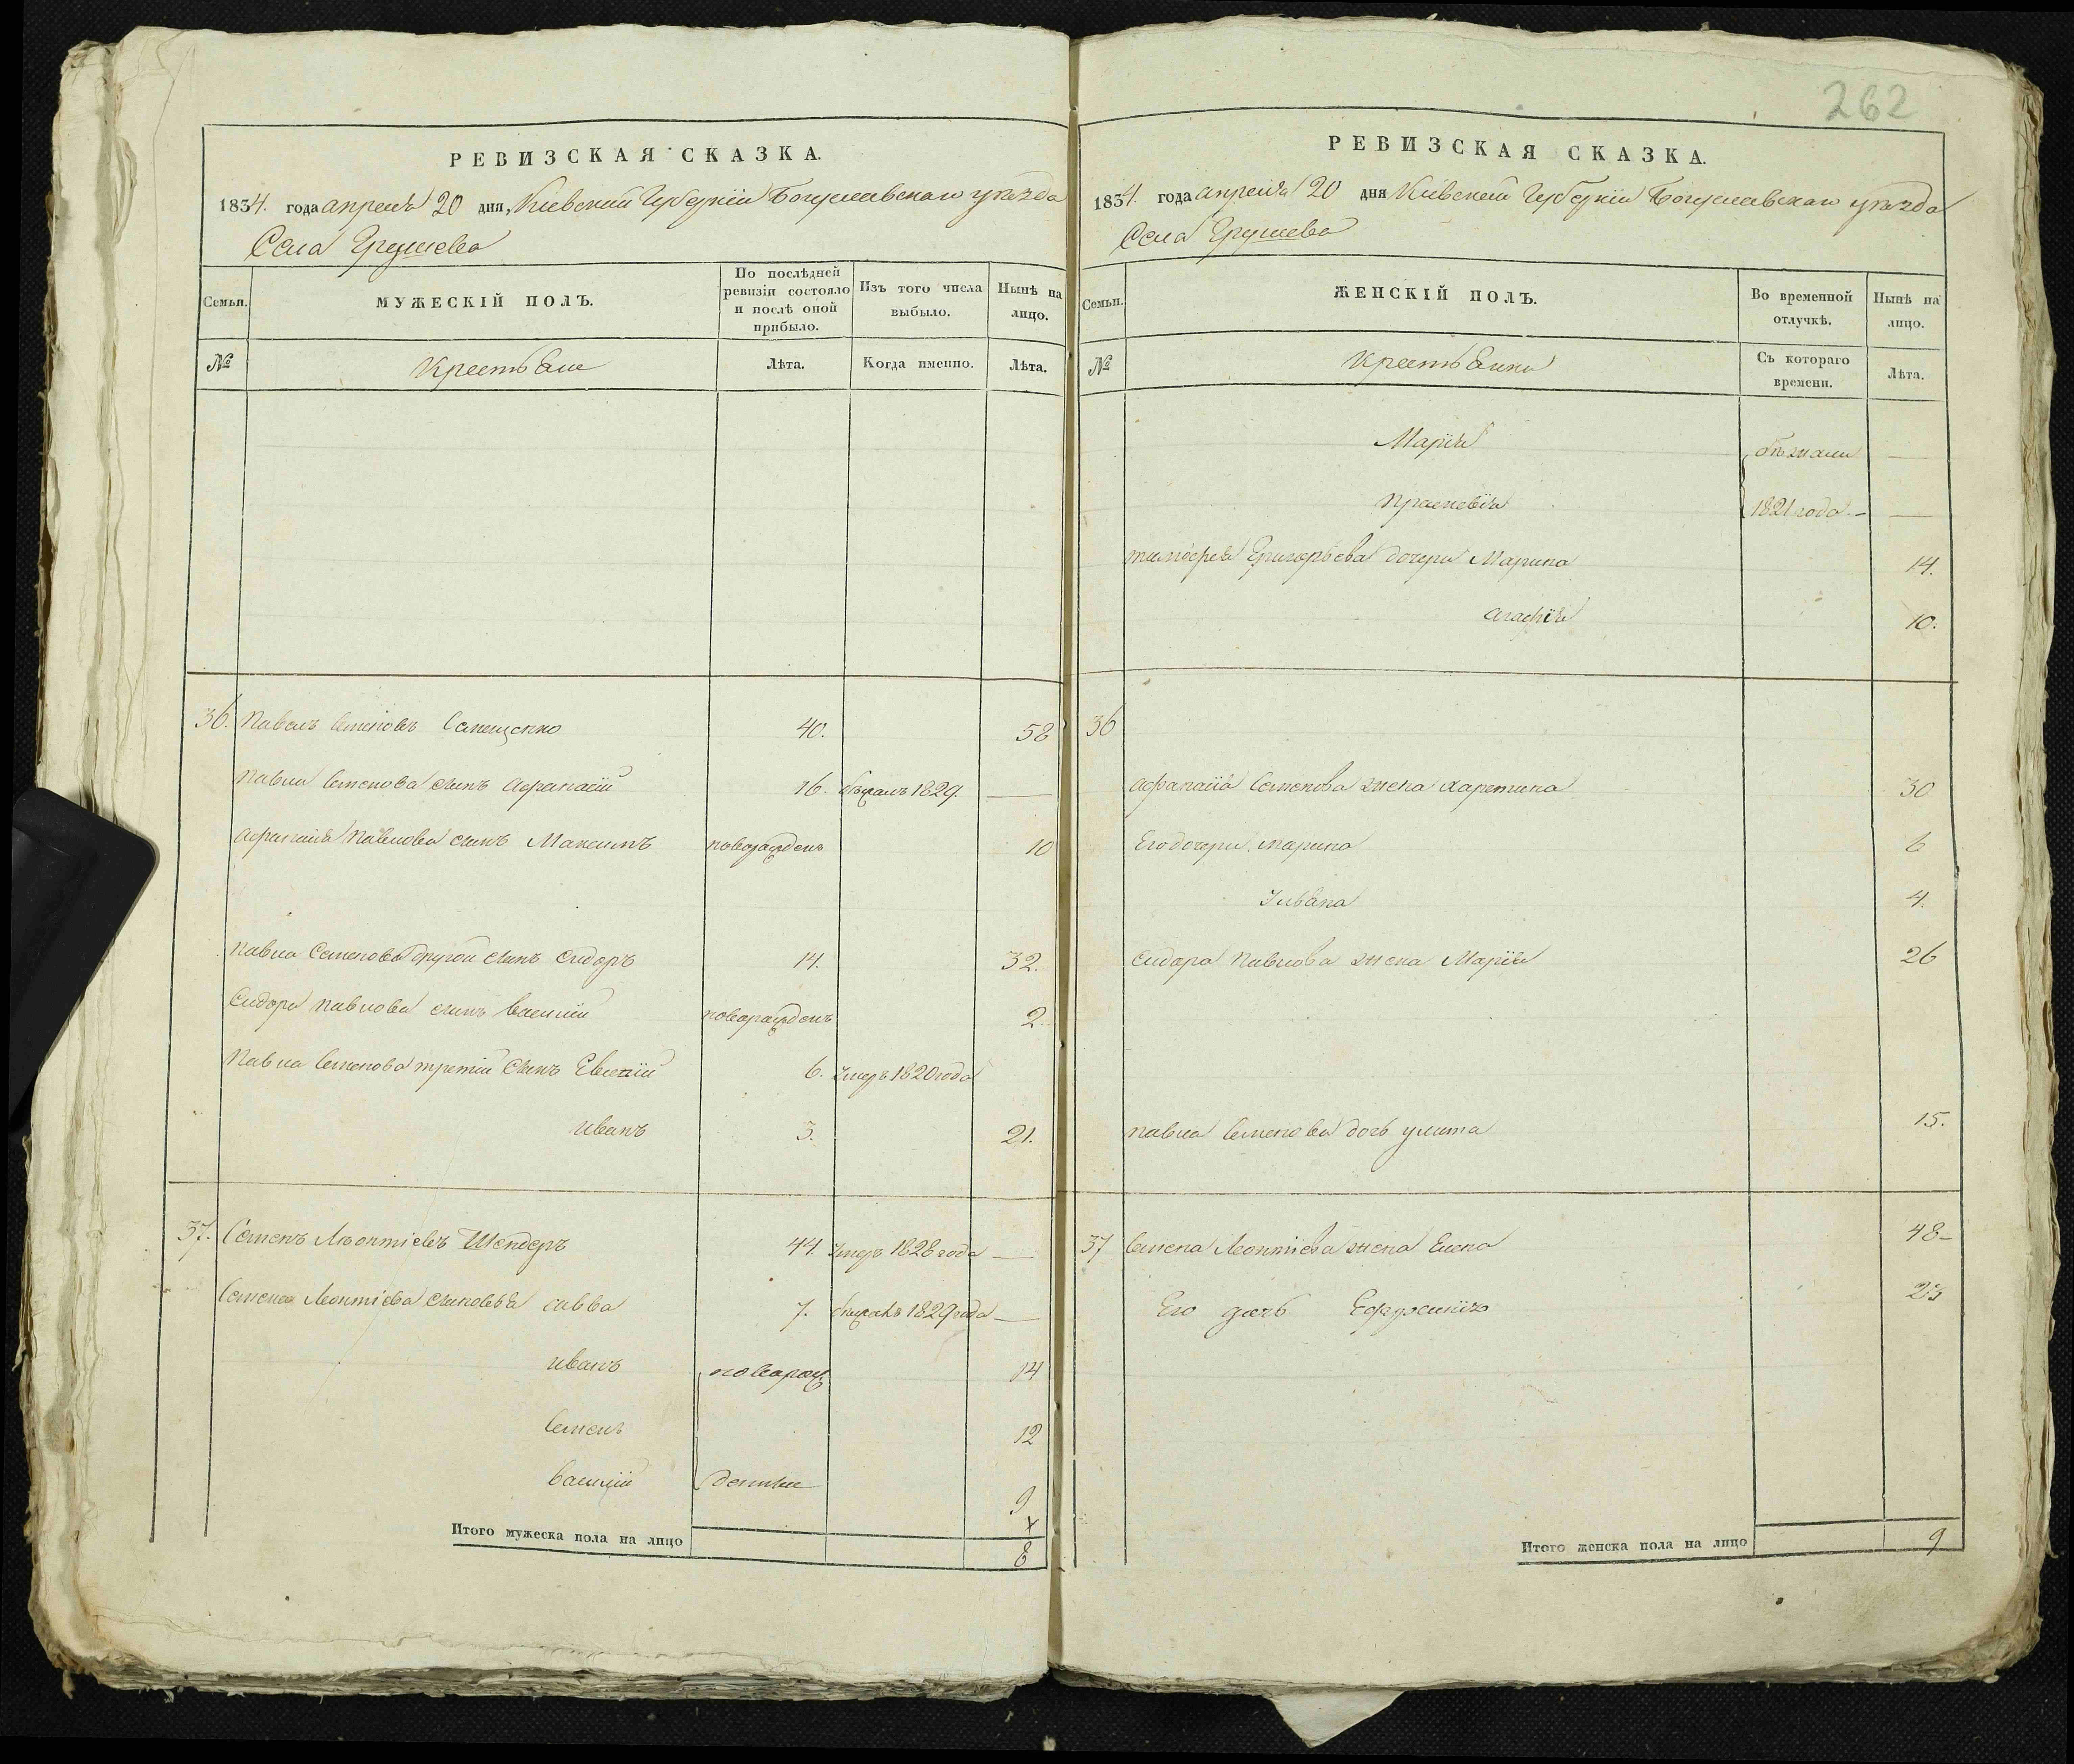 262
РЕВИЗСКАЯ СКАЗКА.
1834. года апреля 20 дня, Кіевской Губерніи Богуславскаго уезда
Села Грушева
Семьи.
МУЖЕСКІЙ ПОЛЪ.
По послѣдней ревизіи состояло и послѣ оной прибыло.
Изъ того числа выбыло.
Нынѣ на лицо.
№
Крестьяне
Лѣта.
Когда именно.
Лѣта.
36. Павелъ Семеновъ 40. 58
Павла Семенова сынъ Афанасій 16. 1829. —
Афанасія Павлова сынъ Максимъ новорожденъ 10
Павла Семенова другой сынъ Сидоръ 14. 32.
Сидора Павлова сынъ Василій новорожденъ 2.
Павла Семенова третій сынъ 6. умеръ 1820 года
Иванъ 3. 21.
37. Семенъ Леонтіевъ Шендеръ 44. умеръ 1828 года —
Семена Леонтіева сыновья Савва 7. 1829 года —
Иванъ новорож 14
Семенъ 12
Василій денные 9
Итого мужеска пола на лицо 8
РЕВИЗСКАЯ СКАЗКА.
1834. года апреля 20 дня Кіевской Губерніи Богуславскаго уезда
Села Грушева
Семьи.
ЖЕНСКІЙ ПОЛЪ.
Во временной отлучкѣ.
Нынѣ на лицо.
№
Крестьянки
Съ котораго времени.
Лѣта.
Марія бѣжали —
Праскевія 1821 года —
Тимофея Григорьева дочери Марина 14.
Агафія 10.
36
Афанасія Семенова жена Харетина 30
Его дочери Марина 6
Ульяна 4.
Сидора Павлова жена Марія 26
Павла Семенова дочь Улита 15.
37 Семена Леонтіева жена Елена 48
Его дочь Ефросинія 23
Итого женска пола на лицо 9